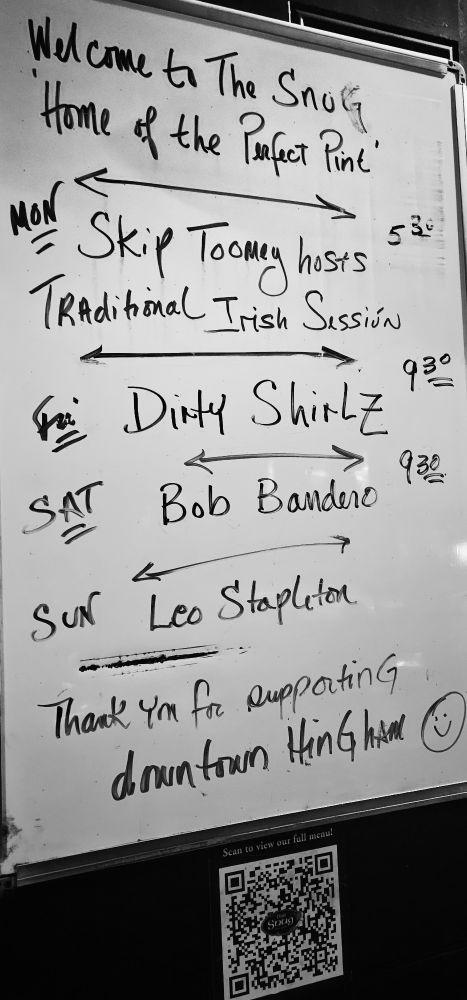 Welcome to The Snug
'Home of the Perfect Pint'
MON Skip Toomey hosts 5 30
Traditional Irish Session
Fri Dirty Shirlz 9 30
SAT Bob Bandero 9 30
SUN Leo Stapleton
Thank You for supporting
downtown HinGham
Scan to view our full menu!
The
Snug